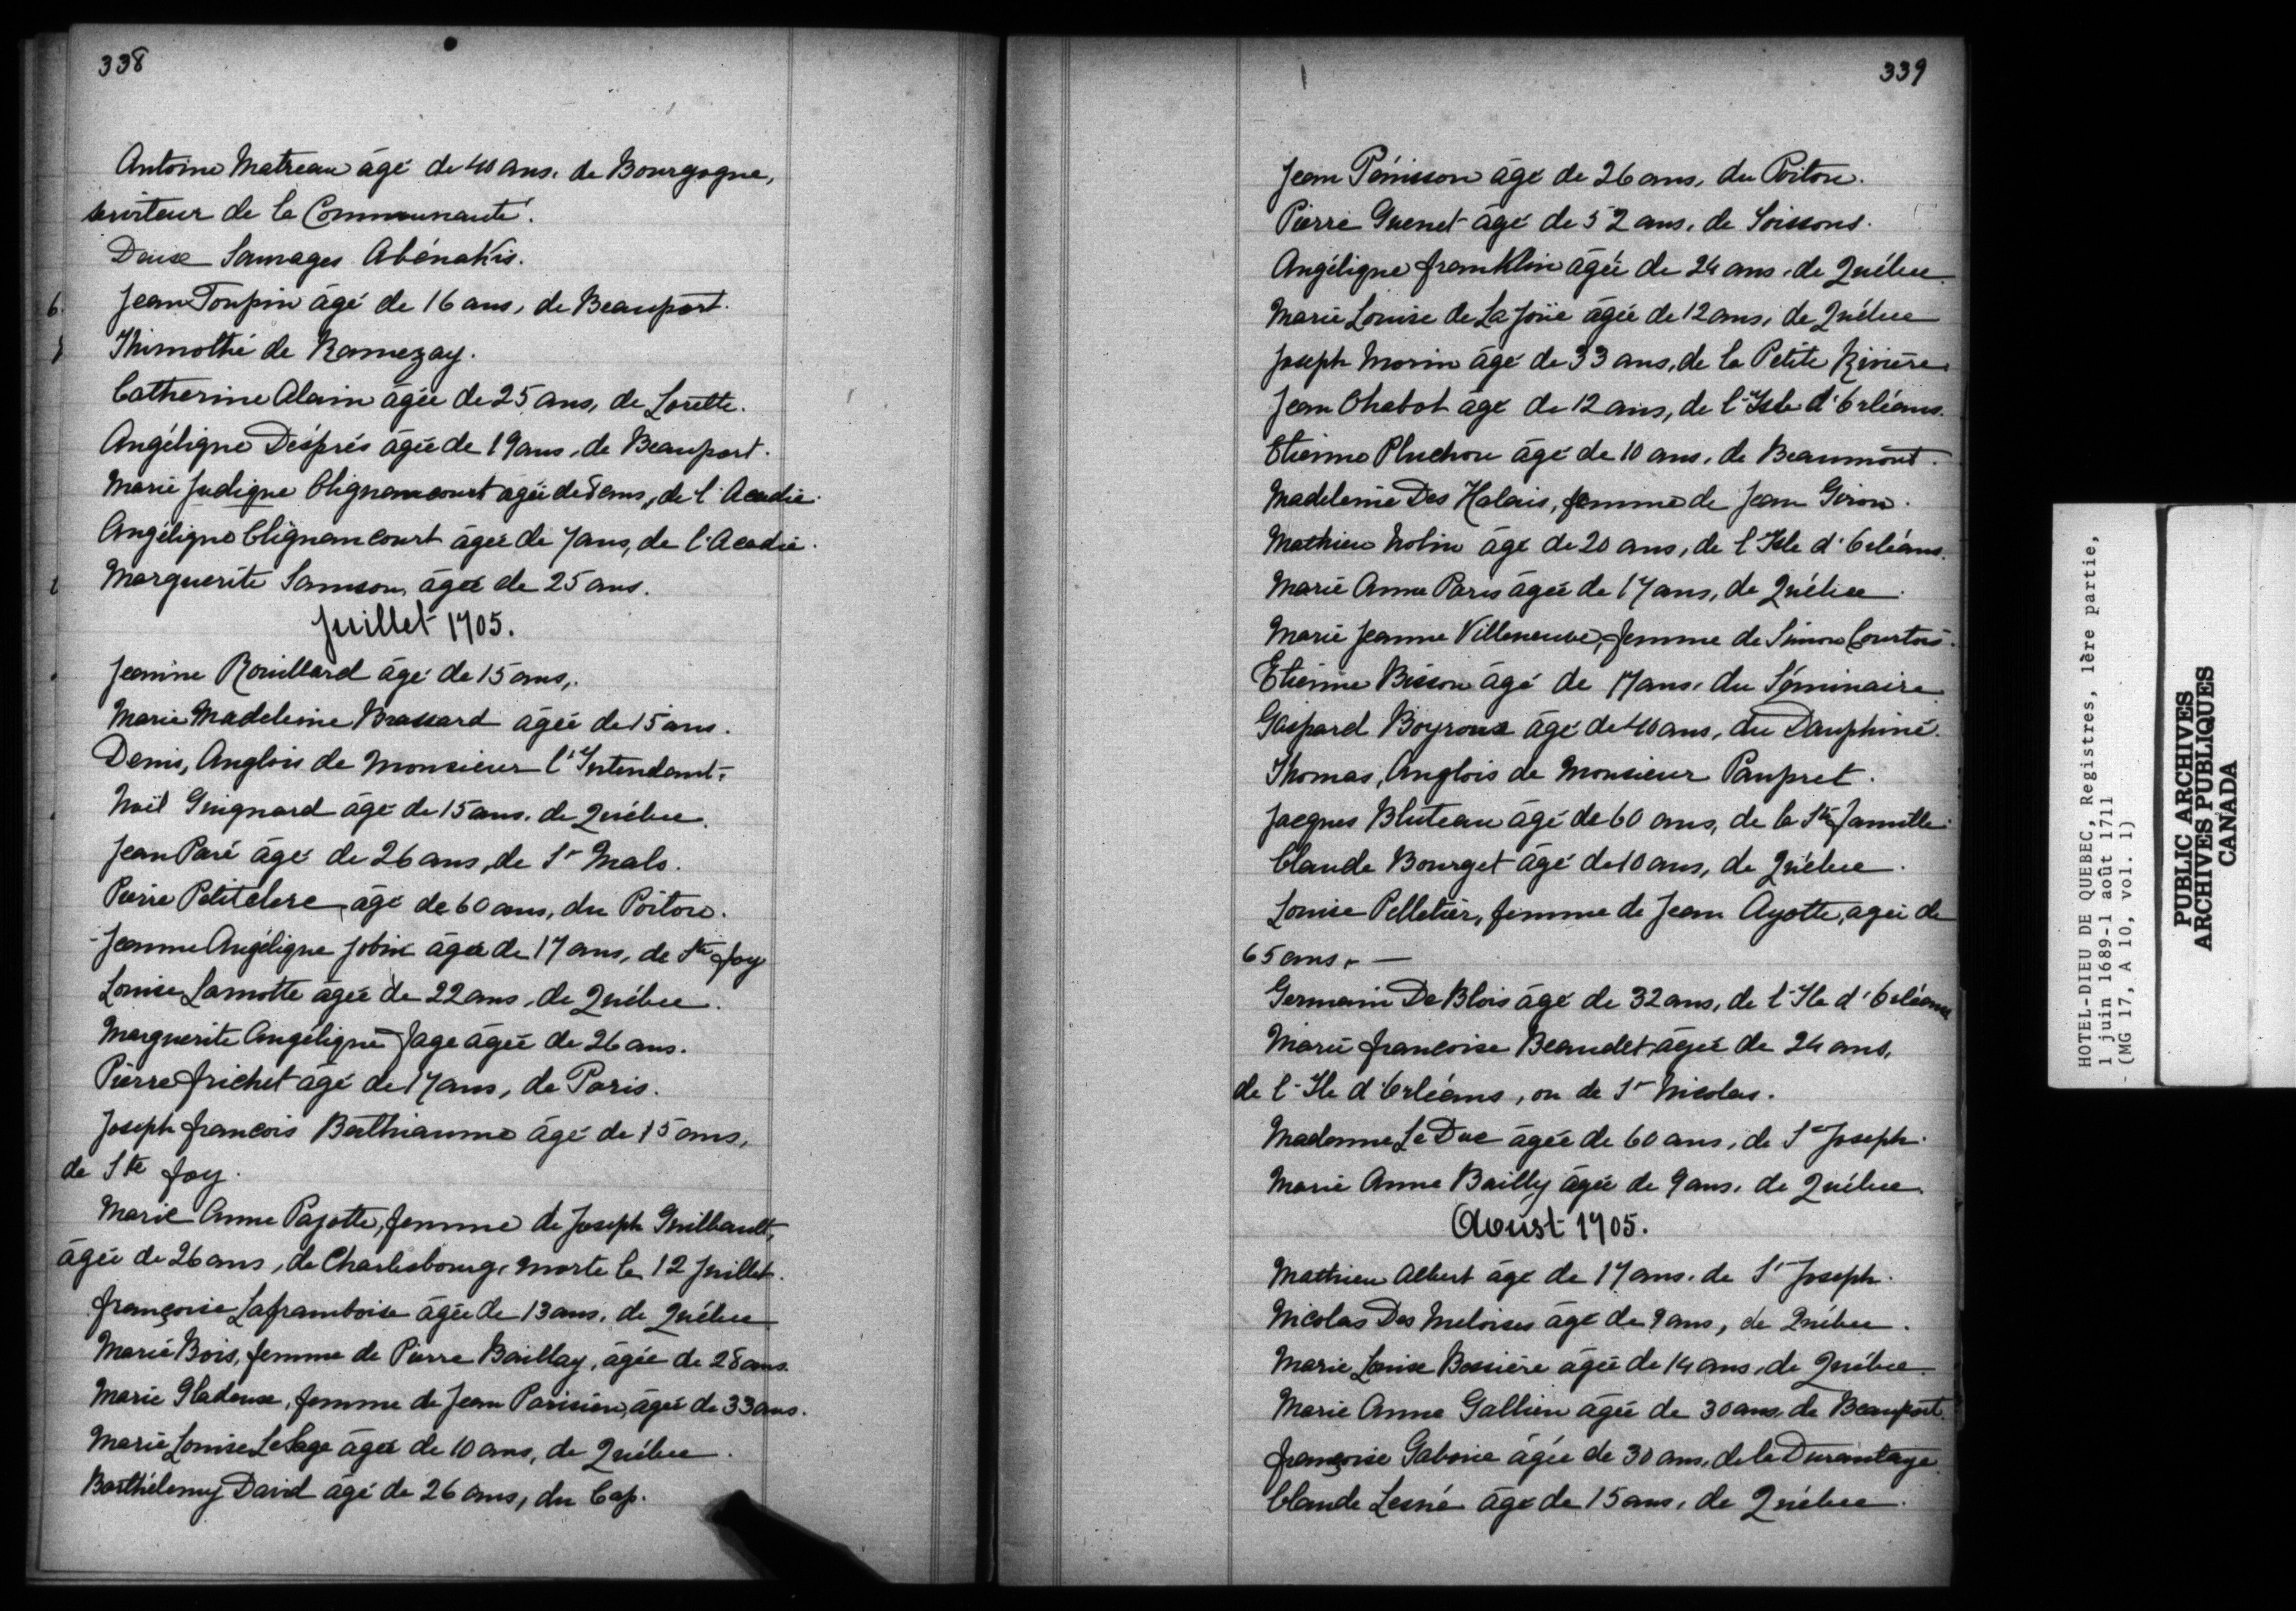 338
Antoine Matreau âgé de 40 ans, de Bourgogne,
serviteur de la Communauté.
Deux Sauvages Abénakis.
6. Jean Toupin âgé de 16 ans, de Beauport.
Thimothé de Ramezay.
Catherine Alain âgée de 25 ans, de Lorette.
Angélique Després âgée de 19 ans, de Beauport.
Marie Judique Clignancourt agée de 8 ans, de l'Acadie.
Angélique Clignancourt âgée de 7 ans, de l'Acadie.
Marguerite Samson, âgée de 25 ans.
Juillet 1705.
Jeanine Rouillard âgé de 15 ans,.
Marie Madeleine Brassard âgée de 15 ans.
Denis, Anglois de Monsieur l'Intendant.
Noël Guignard âgé de 15 ans, de Québec.
Jean Paré âgé de 26 ans, de St Malo.
Pierre Petitclerc âgé de 60 ans, du Poitou.
Jeanne Angélique Jobin âgée de 17 ans, de Ste foy
Louise Lamotte âgée de 22 ans, de Québec.
Marguerite Angélique Page âgée de 26 ans.
Pierre frichet âgé de 17 ans, de Paris.
Joseph francois Berthiaume âgé de 15 ans,
de Ste foy.
Marie Anne Pajotte, femme de Joseph Guilbault,
âgée de 26 ans, de Charlesbourg, morte le 12 Juillet.
françoise Laframboise âgée de 13 ans, de Québec
Marie Bois, femme de Pierre Baillay, âgée de 28 ans.
Marie Gladeux, femme de Jean Parisien, âgée de 33 ans.
Marie Louise LeSage âgée de 10 ans, de Québec.
Barthélemy David âgé de 26 ans, du Cap.
339
Jean Pénisson âgé de 26 ans, du Poitou.
Pierre Guenet âgé de 52 ans, de Soissons.
Angélique franklin âgée de 24 ans, de Québec.
Marie Louise de La Joüe âgée de 12 ans, de Québec
Joseph Morin âgé de 33 ans, de la Petite Rivière.
Jean Chabot âgé de 12 ans, de l'Isle d'Orléans.
Etienne Pluchon âgé de 10 ans, de Beaumont.
Madeleine Des Halais, femme de Jean Giron.
Mathieu Nolin âgé de 20 ans, de l'Isle d'Orléans.
Marie Anne Paris âgée de 17 ans, de Québec.
Marie Jeanne Villeneuve, femme de Simon Courtois.
Etienne Bisson âgé de 17 ans, du Séminaire
Gaspard Boyroux âgé de 40 ans, du Dauphiné.
Thomas, Anglois de Monsieur Paupret.
Jacques Bluteau âgé de 60 ans, de la Ste famille.
Claude Bourget âgé de 10 ans, de Québec.
Louise Pelletier, femme de Jean Ayotte, agée de
65 ans. —
Germain De Blois âgé de 32 ans, de l'Ile d'Orléans
Marie francoise Beaudet, âgée de 24 ans,
de l'Ile d'Orléans, ou de St Nicolas.
Madame Le Duc âgée de 60 ans, de St Joseph.
Marie Anne Bailly âgée de 9 ans, de Québec.
Aoust 1705.
Mathieu Albert âgé de 17 ans, de St Joseph.
Nicolas Des Meloises âgé de 9 ans, de Québec.
Marie Louise Bossière âgée de 14 ans, de Québec.
Marie Anne Gallien âgée de 30 ans, de Beauport.
françoise Gaborie âgée de 30 ans, de la Durantaye
Claude Lesné âgé de 15 ans, de Québec.
HOTEL-DIEU DE QUEBEC, Registres, 1ère partie,
1 juin 1689-1 août 1711
(MG 17, A 10, vol. 1)
PUBLIC ARCHIVES
ARCHIVES PUBLIQUES
CANADA